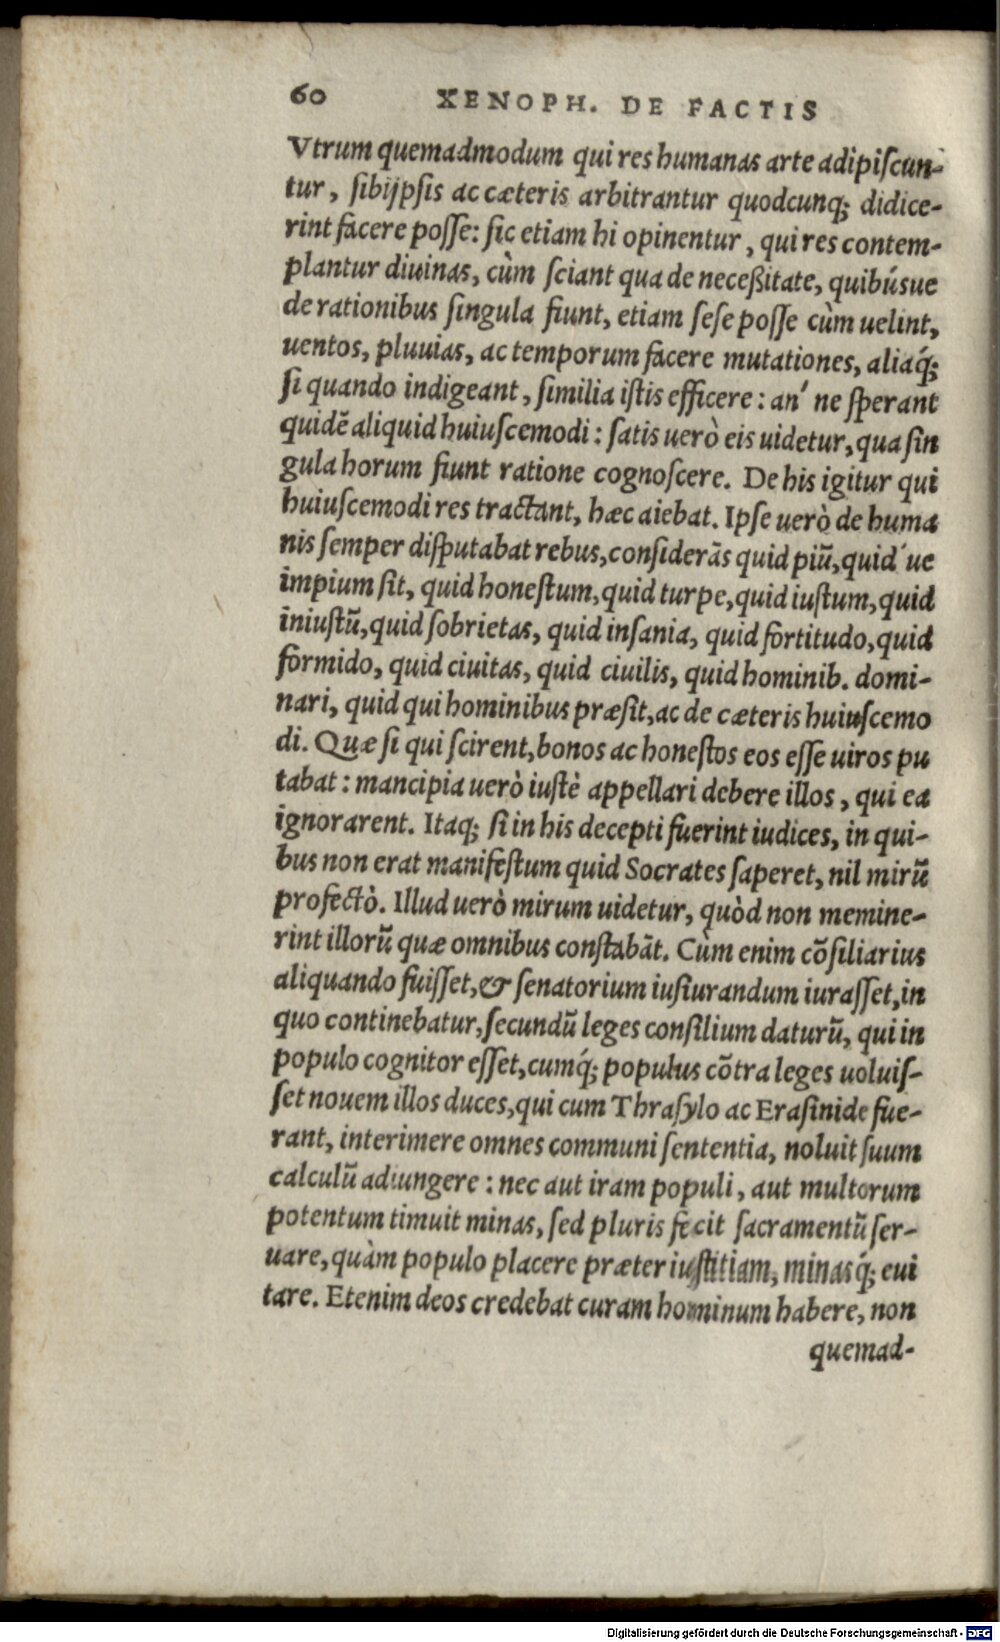 60 XENOPH. DE FACTIS
Vtrum quemadmodum qui res humanas arte adipiſcun-
tur, ſibijpſis ac cæteris arbitrantur quodcunq; didice-
rint facere poſſe: ſic etiam hi opinentur, qui res contem-
plantur diuinas, cùm ſciant qua de neceßitate, quibúsue
de rationibus ſingula fiunt, etiam ſeſe poſſe cùm uelint,
uentos, pluuias, ac temporum facere mutationes, aliaq́;
ſi quando indigeant, ſimilia iſtis efficere: an' ne ſperant
quidē aliquid huiuſcemodi: ſatis uerò eis uidetur, qua ſin
gula horum fiunt ratione cognoſcere. De his igitur qui
huiuſcemodi res tractant, hæc aiebat. Ipſe uerò de huma
nis ſemper diſputabat rebus, conſiderās quid piū, quid'ue
impium ſit, quid honeſtum, quid turpe, quid iuſtum, quid
iniuſtū, quid ſobrietas, quid inſania, quid fortitudo, quid
formido, quid ciuitas, quid ciuilis, quid hominib. domi-
nari, quid qui hominibus præſit, ac de cæteris huiuſcemo
di. Quæ ſi qui ſcirent, bonos ac honeſtos eos eſſe uiros pu
tabat: mancipia uerò iuſtè appellari debere illos, qui ea
ignorarent. Itaq; ſi in his decepti fuerint iudices, in qui-
bus non erat manifeſtum quid Socrates ſaperet, nil mirū
profectò. Illud uerò mirum uidetur, quòd non memine-
rint illorū quæ omnibus conſtabāt. Cùm enim cōſiliarius
aliquando fuiſſet, & ſenatorium iuſiurandum iuraſſet, in
quo continebatur, ſecundū leges conſilium daturū, qui in
populo cognitor eſſet, cumq́; populus cōtra leges uoluiſ-
ſet nouem illos duces, qui cum Thraſylo ac Eraſinide fue-
rant, interimere omnes communi ſententia, noluit ſuum
calculū adiungere: nec aut iram populi, aut multorum
potentum timuit minas, ſed pluris fecit ſacramentū ſer-
uare, quàm populo placere præter iuſtitiam, minasq́; eui
tare. Etenim deos credebat curam hominum habere, non
quemad-
Digitalisierung gefördert durch die Deutsche Forschungsgemeinschaft - DFG